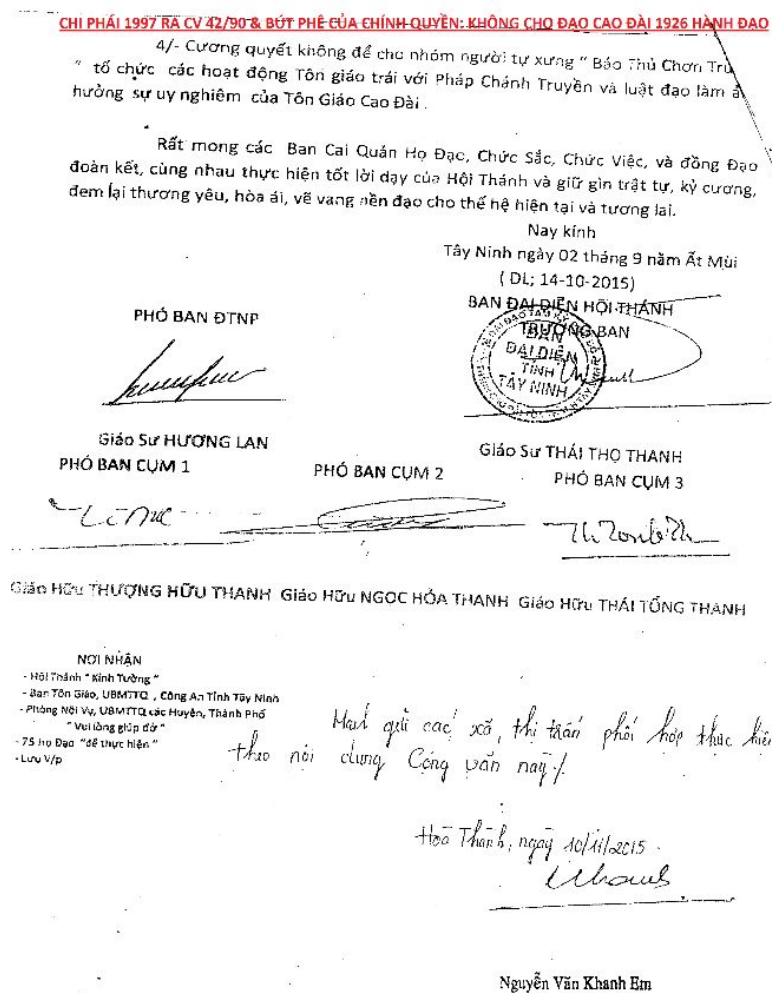 CHI PHÁI 1997 RA CV 42/90 & BÚT PHÊ CỦA CHÍNH QUYỀN: KHÔNG CHO ĐẠO CAO ĐÀI 1926 HÀNH ĐẠO
4/- Cương quyết không để cho nhóm người tự xưng " Bảo Thủ Chơn Tru
" tổ chức các hoạt động Tôn giáo trái với Pháp Chánh Truyền và luật đạo làm ả
hưởng sự uy nghiêm của Tôn Giáo Cao Đài .
Rất mong các Ban Cai Quản Họ Đạo, Chức Sắc, Chức Việc, và đồng Đạo
đoàn kết, cùng nhau thực hiện tốt lời dạy của Hội Thánh và giữ gìn trật tự, kỷ cương,
đem lại thương yêu, hòa ái, vẽ vang nền đạo cho thế hệ hiện tại và tương lai.
Nay kính
Tây Ninh ngày 02 tháng 9 năm Ất Mùi
( DL; 14-10-2015)
BAN ĐẠI DIỆN HỘI THÁNH
PHÓ BAN ĐTNP
TRƯỞNG BAN
BAN
ĐẠI DIỆN
TỈNH
TÂY NINH
Giáo Sư HƯƠNG LAN
Giáo Sư THÁI THỌ THANH
PHÓ BAN CỤM 1
PHÓ BAN CỤM 2
PHÓ BAN CỤM 3
Giáo Hữu THƯỢNG HỮU THANH Giáo Hữu NGỌC HÓA THANH Giáo Hữu THÁI TỔNG THANH
NƠI NHẬN
- Hội Thánh " Kính Tường "
- Ban Tôn Giáo, UBMTTQ , Công An Tỉnh Tây Ninh
- Phòng Nội Vụ, UBMTTQ các Huyện, Thành Phố
" Vui lòng giúp đở "
- 75 họ Đạo "để thực hiện "
- Lưu V/p
gửi các xã, thị trấn phối hợp thực hiện
theo nội dung Công văn này ./.
Hoà Thành, ngày 10/11/2015 .
Nguyễn Văn Khanh Em